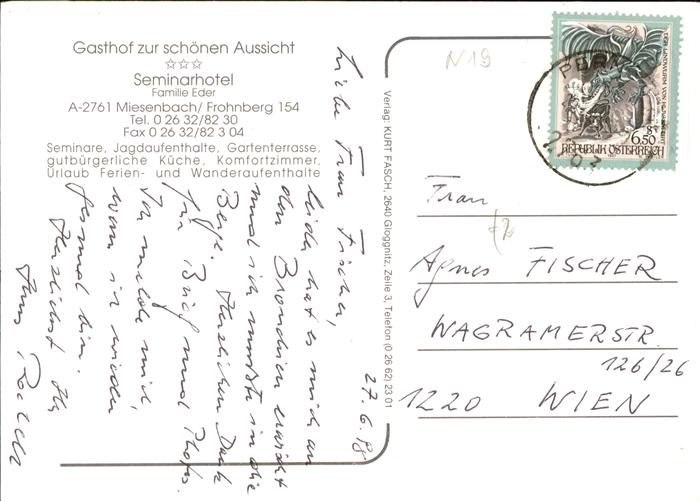 Gasthof zur schönen Aussicht
Seminarhotel
Familie Eder
A-2761 Miesenbach/ Frohnberg 154
Tel. 0 26 32/82 30
Fax 0 26 32/82 3 04
Seminare, Jagdaufenthalte, Gartenterrasse,
gutbürgerliche Küche, Komfortzimmer,
Urlaub Ferien- und Wanderaufenthalte
27. 6.
Liebe Frau Fischer,
leider hat es mich an
den Bronchien erwischt
und ich mußte in die
Berge. Herzlichen Dank
für Brief und Photos.
Ich melde mich,
wann ich wieder
gesund bin.
Herzlichst Ihr
Hans
Verlag: KURT FASCH, 2640 Gloggnitz, Zeile 3, Telefon (0 26 62) 23 01
N19
PERN
6.50
REPUBLIK ÖSTERREICH
Frau
Agnes FISCHER
WAGRAMERSTR.
126/26
1220 WIEN